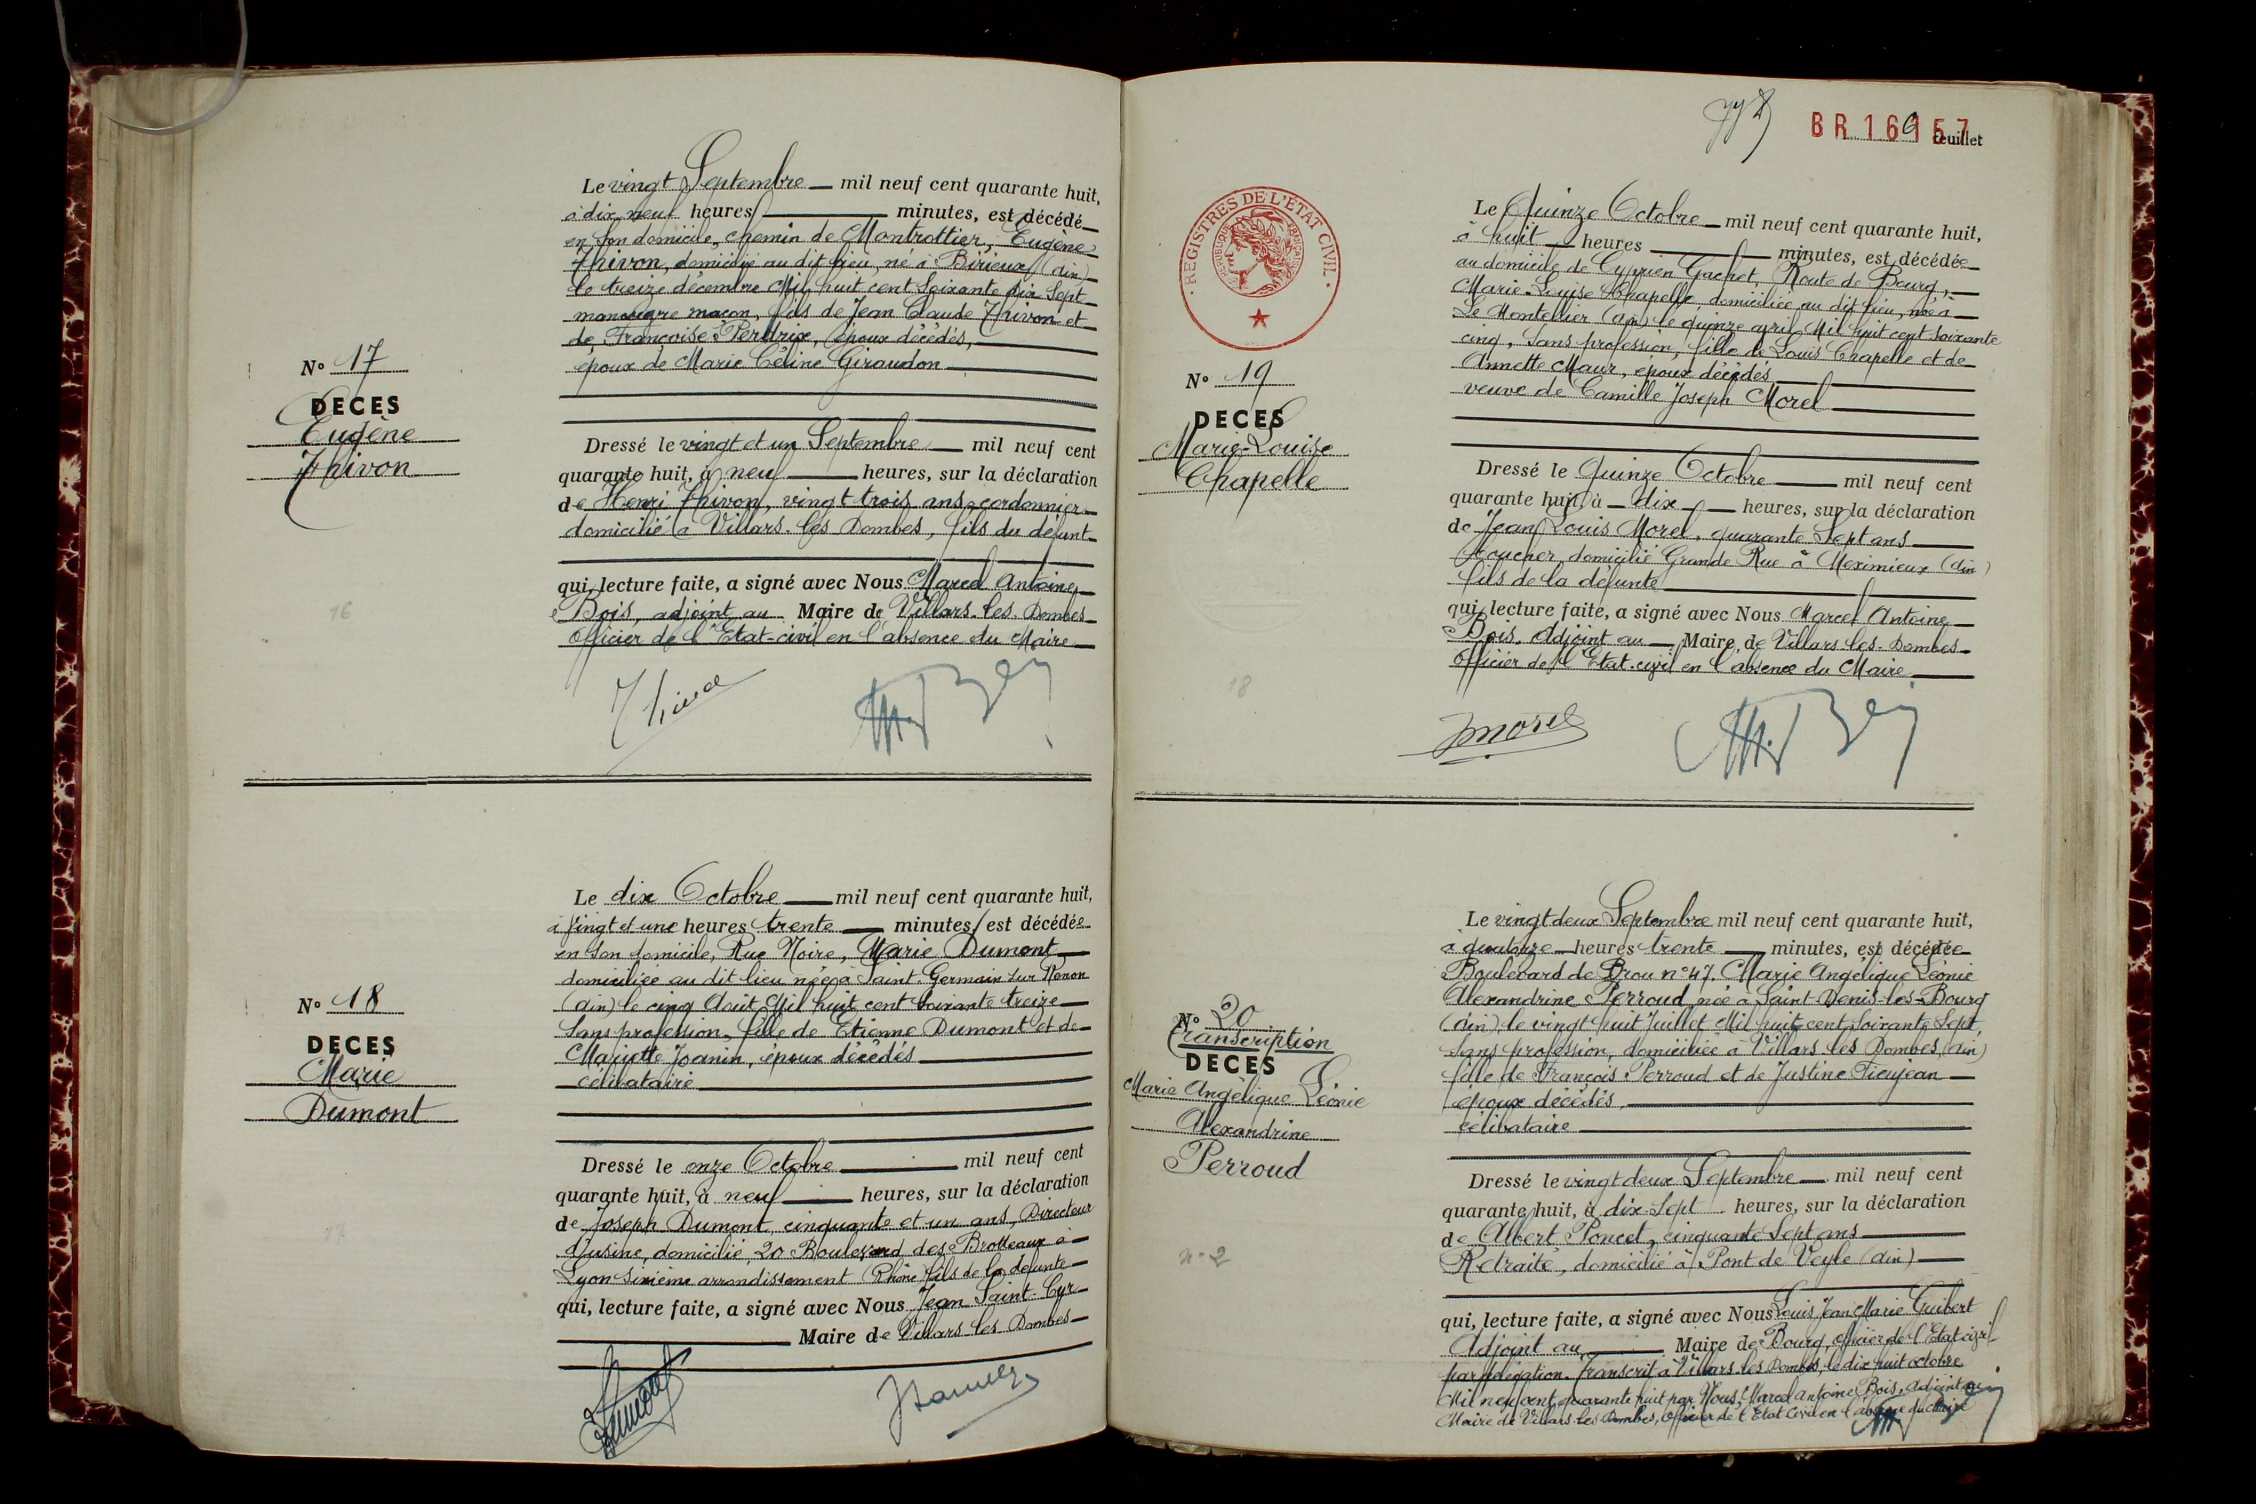 Le vingt Septembre mil neuf cent quarante huit,
à dix neuf heures minutes, est décédé
en son domicile, chemin de Montrottier, Eugène
Thivon, domicilié au dit lieu, né à Birieux (Ain)
le treize décembre Mil huit cent soixante dix sept
manœuvre maçon, fils de Jean Claude Thivon et
de Françoise Perdrix, époux décédés,
époux de Marie Céline Giraudon
N° 17
DECES
Eugène
Thivon
Dressé le vingt et un Septembre mil neuf cent
quarante huit, à neuf heures, sur la déclaration
de Henri Thivon, vingt trois ans, cordonnier
domicilié à Villars-les-Dombes, fils du défunt
qui, lecture faite, a signé avec Nous Marcel Antoine
Bois, adjoint au Maire de Villars-les-Dombes
Officier de l'Etat-civil en l'absence du Maire
16
Le dix Octobre mil neuf cent quarante huit,
à vingt et une heures trente minutes, est décédée
en son domicile, Rue Noire, Marie Dumont
domiciliée au dit lieu née à Saint-Germain sur Renon
(Ain) le cinq Août Mil huit cent soixante treize
Sans profession, fille de Etienne Dumont et de
Mariette Joanin, époux décédés
célibataire
N° 18
DECES
Marie
Dumont
Dressé le onze Octobre mil neuf cent
quarante huit, à neuf heures, sur la déclaration
de Joseph Dumont, cinquante et un ans, Directeur
d'usine, domicilié, 20 Boulevard des Brotteaux à
Lyon sixième arrondissement (Rhône) fils de la défunte
qui, lecture faite, a signé avec Nous Jean Saint-Cyr
Maire de Villars-les-Dombes
17
BR 16 157
feuillet
REGISTRES DE L'ÉTAT CIVIL
RÉPUBLIQUE FRANÇAISE
Le Quinze Octobre mil neuf cent quarante huit,
à huit heures minutes, est décédée
au domicile de Cyprien Gachet, Route de Bourg,
Marie-Louise Chapelle, domiciliée au dit lieu, née à
Le Montellier (Ain) le quinze avril Mil huit cent soixante
cinq, Sans profession, fille de Louis Chapelle et de
Annette Maur, époux décédés
veuve de Camille Joseph Morel
N° 19
DECES
Marie-Louise
Chapelle
Dressé le quinze Octobre mil neuf cent
quarante huit, à dix heures, sur la déclaration
de Jean Louis Morel, quarante Sept ans
boucher, domicilié Grande Rue à Meximieux (Ain)
fils de la défunte
qui, lecture faite, a signé avec Nous Marcel Antoine
Bois, Adjoint au Maire, de Villars-les-Dombes
Officier de l'Etat-civil en l'absence du Maire
18
JMorel
Le vingt deux Septembre mil neuf cent quarante huit,
à quatorze heures trente minutes, est décédée
Boulevard de Brou n° 47. Marie Angélique Léonie
Alexandrine Perroud, née à Saint-Denis-les-Bourg
(Ain), le vingt huit Juillet Mil huit cent Soixante Sept
Sans profession, domiciliée à Villars les Dombes (Ain)
fille de François Perroud et de Justine Tieujean
époux décédés,
célibataire
N° 20
Transcription
DECES
Marie Angélique Léonie
Alexandrine
Perroud
Dressé le vingt deux Septembre mil neuf cent
quarante huit, à dix-Sept heures, sur la déclaration
de Albert Poncet, cinquante Sept ans
Retraité, domicilié à Pont de Veyle (Ain)
n° 2
qui, lecture faite, a signé avec Nous Louis Jean Marie Guibert
Adjoint au Maire de Bourg, officier de l'Etat civil
par délégation. Transcrit à Villars les Dombes, le dix huit octobre
Mil neuf cent quarante huit par Nous, Marcel Antoine Bois, Adjoint au
Maire de Villars-les-Dombes, Officier de l'Etat Civil en l'absence du Maire